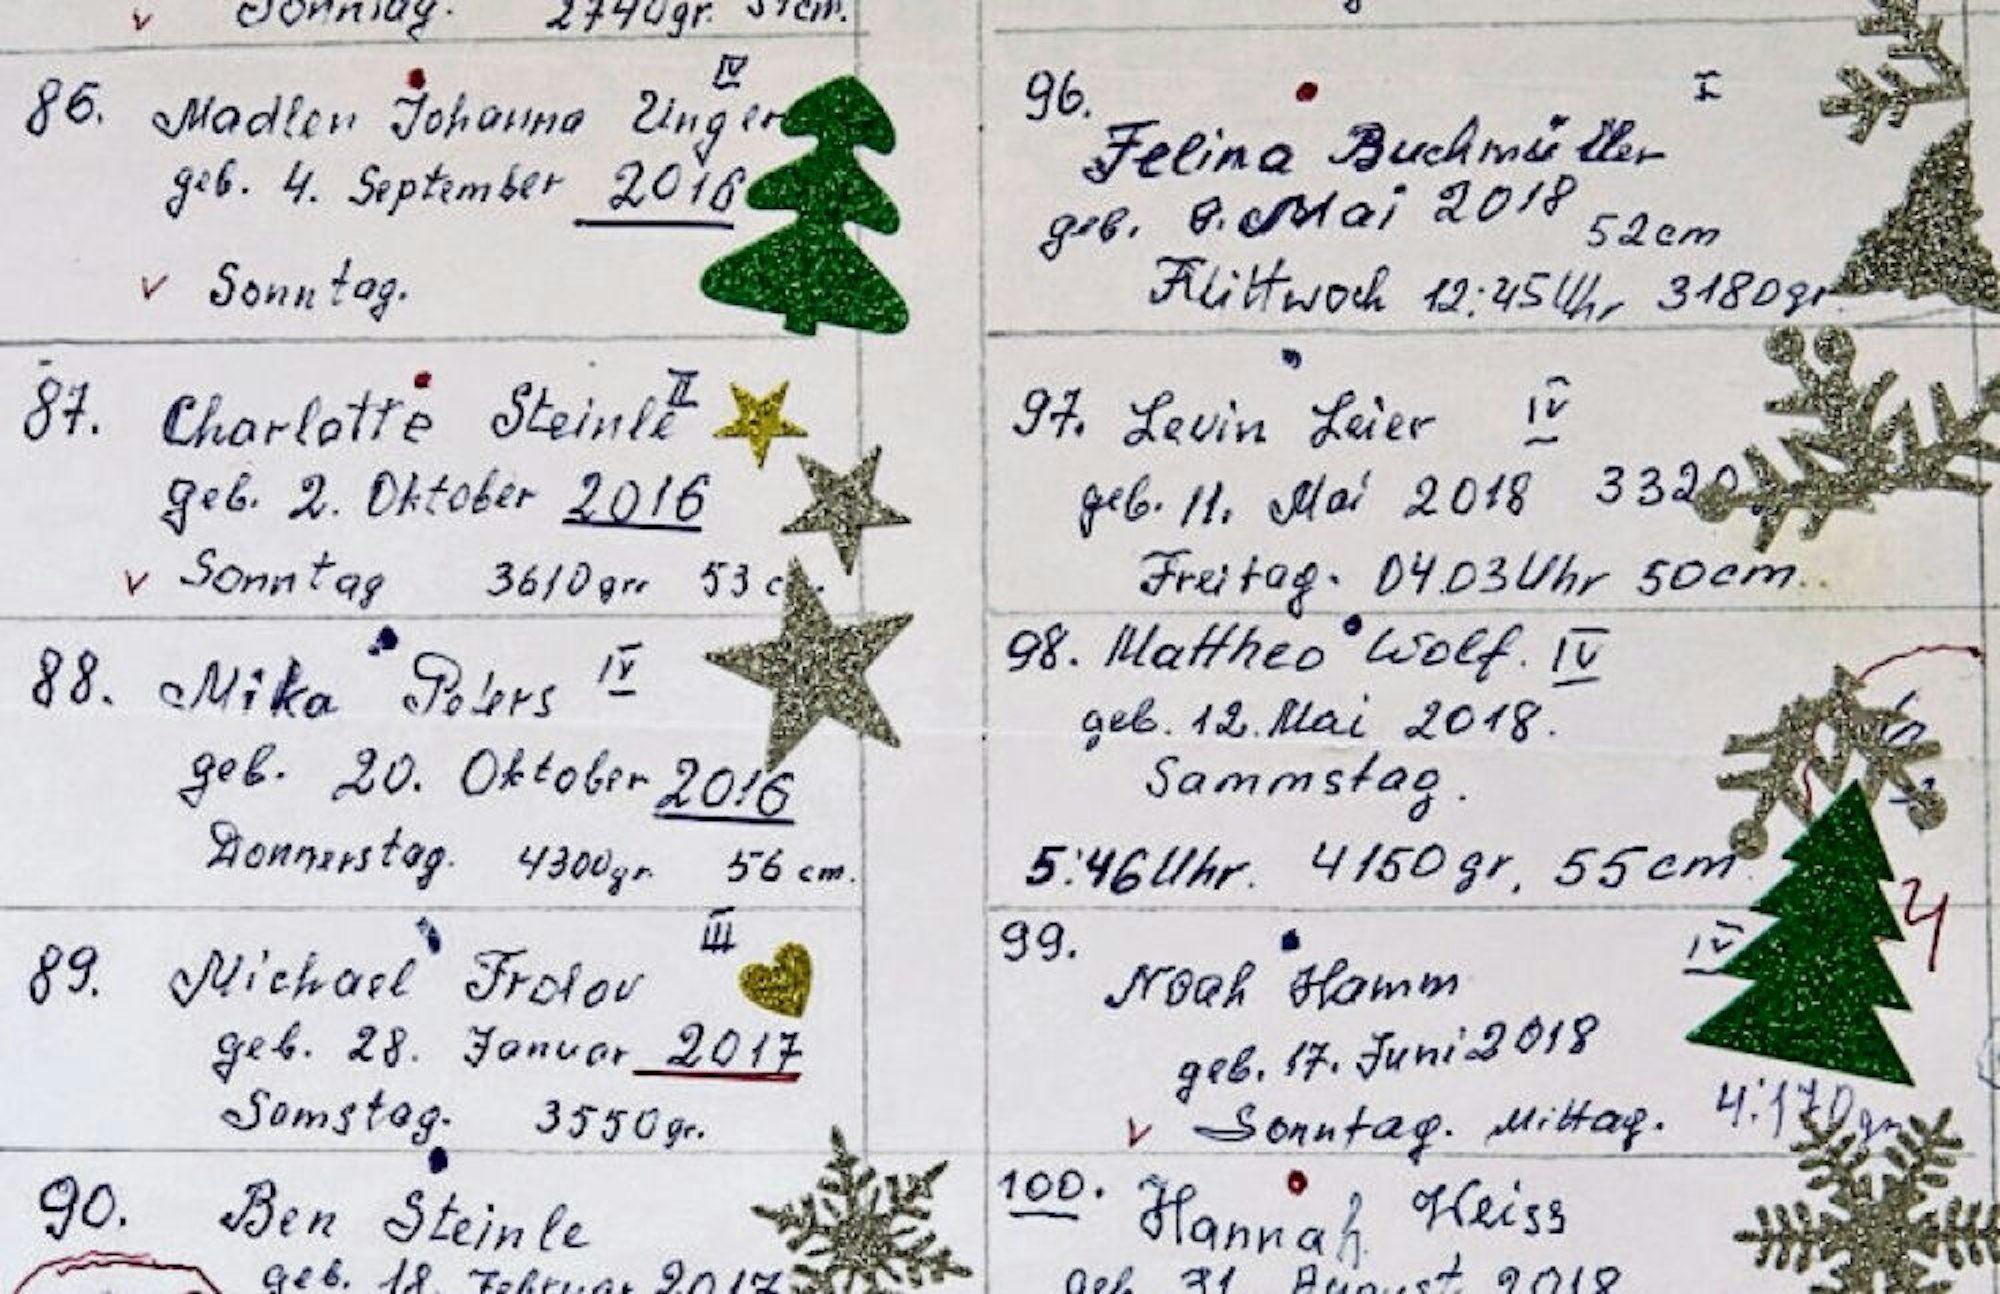 Sonntag. 2740gr. 51cm.
86. Madlen Johanna Unger IV
geb. 4. September 2016
v Sonntag.
87. Charlotte Steinle II
geb. 2. Oktober 2016
v Sonntag 3610gr. 53 c
88. Mika Peters IV
geb. 20. Oktober 2016
Donnerstag. 4300gr. 56 cm.
89. Michael Frolov III
geb. 28. Januar 2017
Samstag. 3550gr.
90. Ben Steinle
geb. 18. Februar 2017
96. I
Felina Buchmüller
geb. Mai 2018 52cm
Mittwoch 12:45Uhr 3180gr.
97. Levin Leier IV
geb. 11. Mai 2018 3320
Freitag. 04.03Uhr 50cm.
98. Mattheo Wolf. IV
geb. 12. Mai 2018.
Sammstag.
5:46Uhr. 4150gr, 55cm.
4
99. IV
Noah Hamm
geb. 17. Juni 2018
v Sonntag. Mittag. 4:170gr
100. Hannah Weiss
geb. 31. August 2018